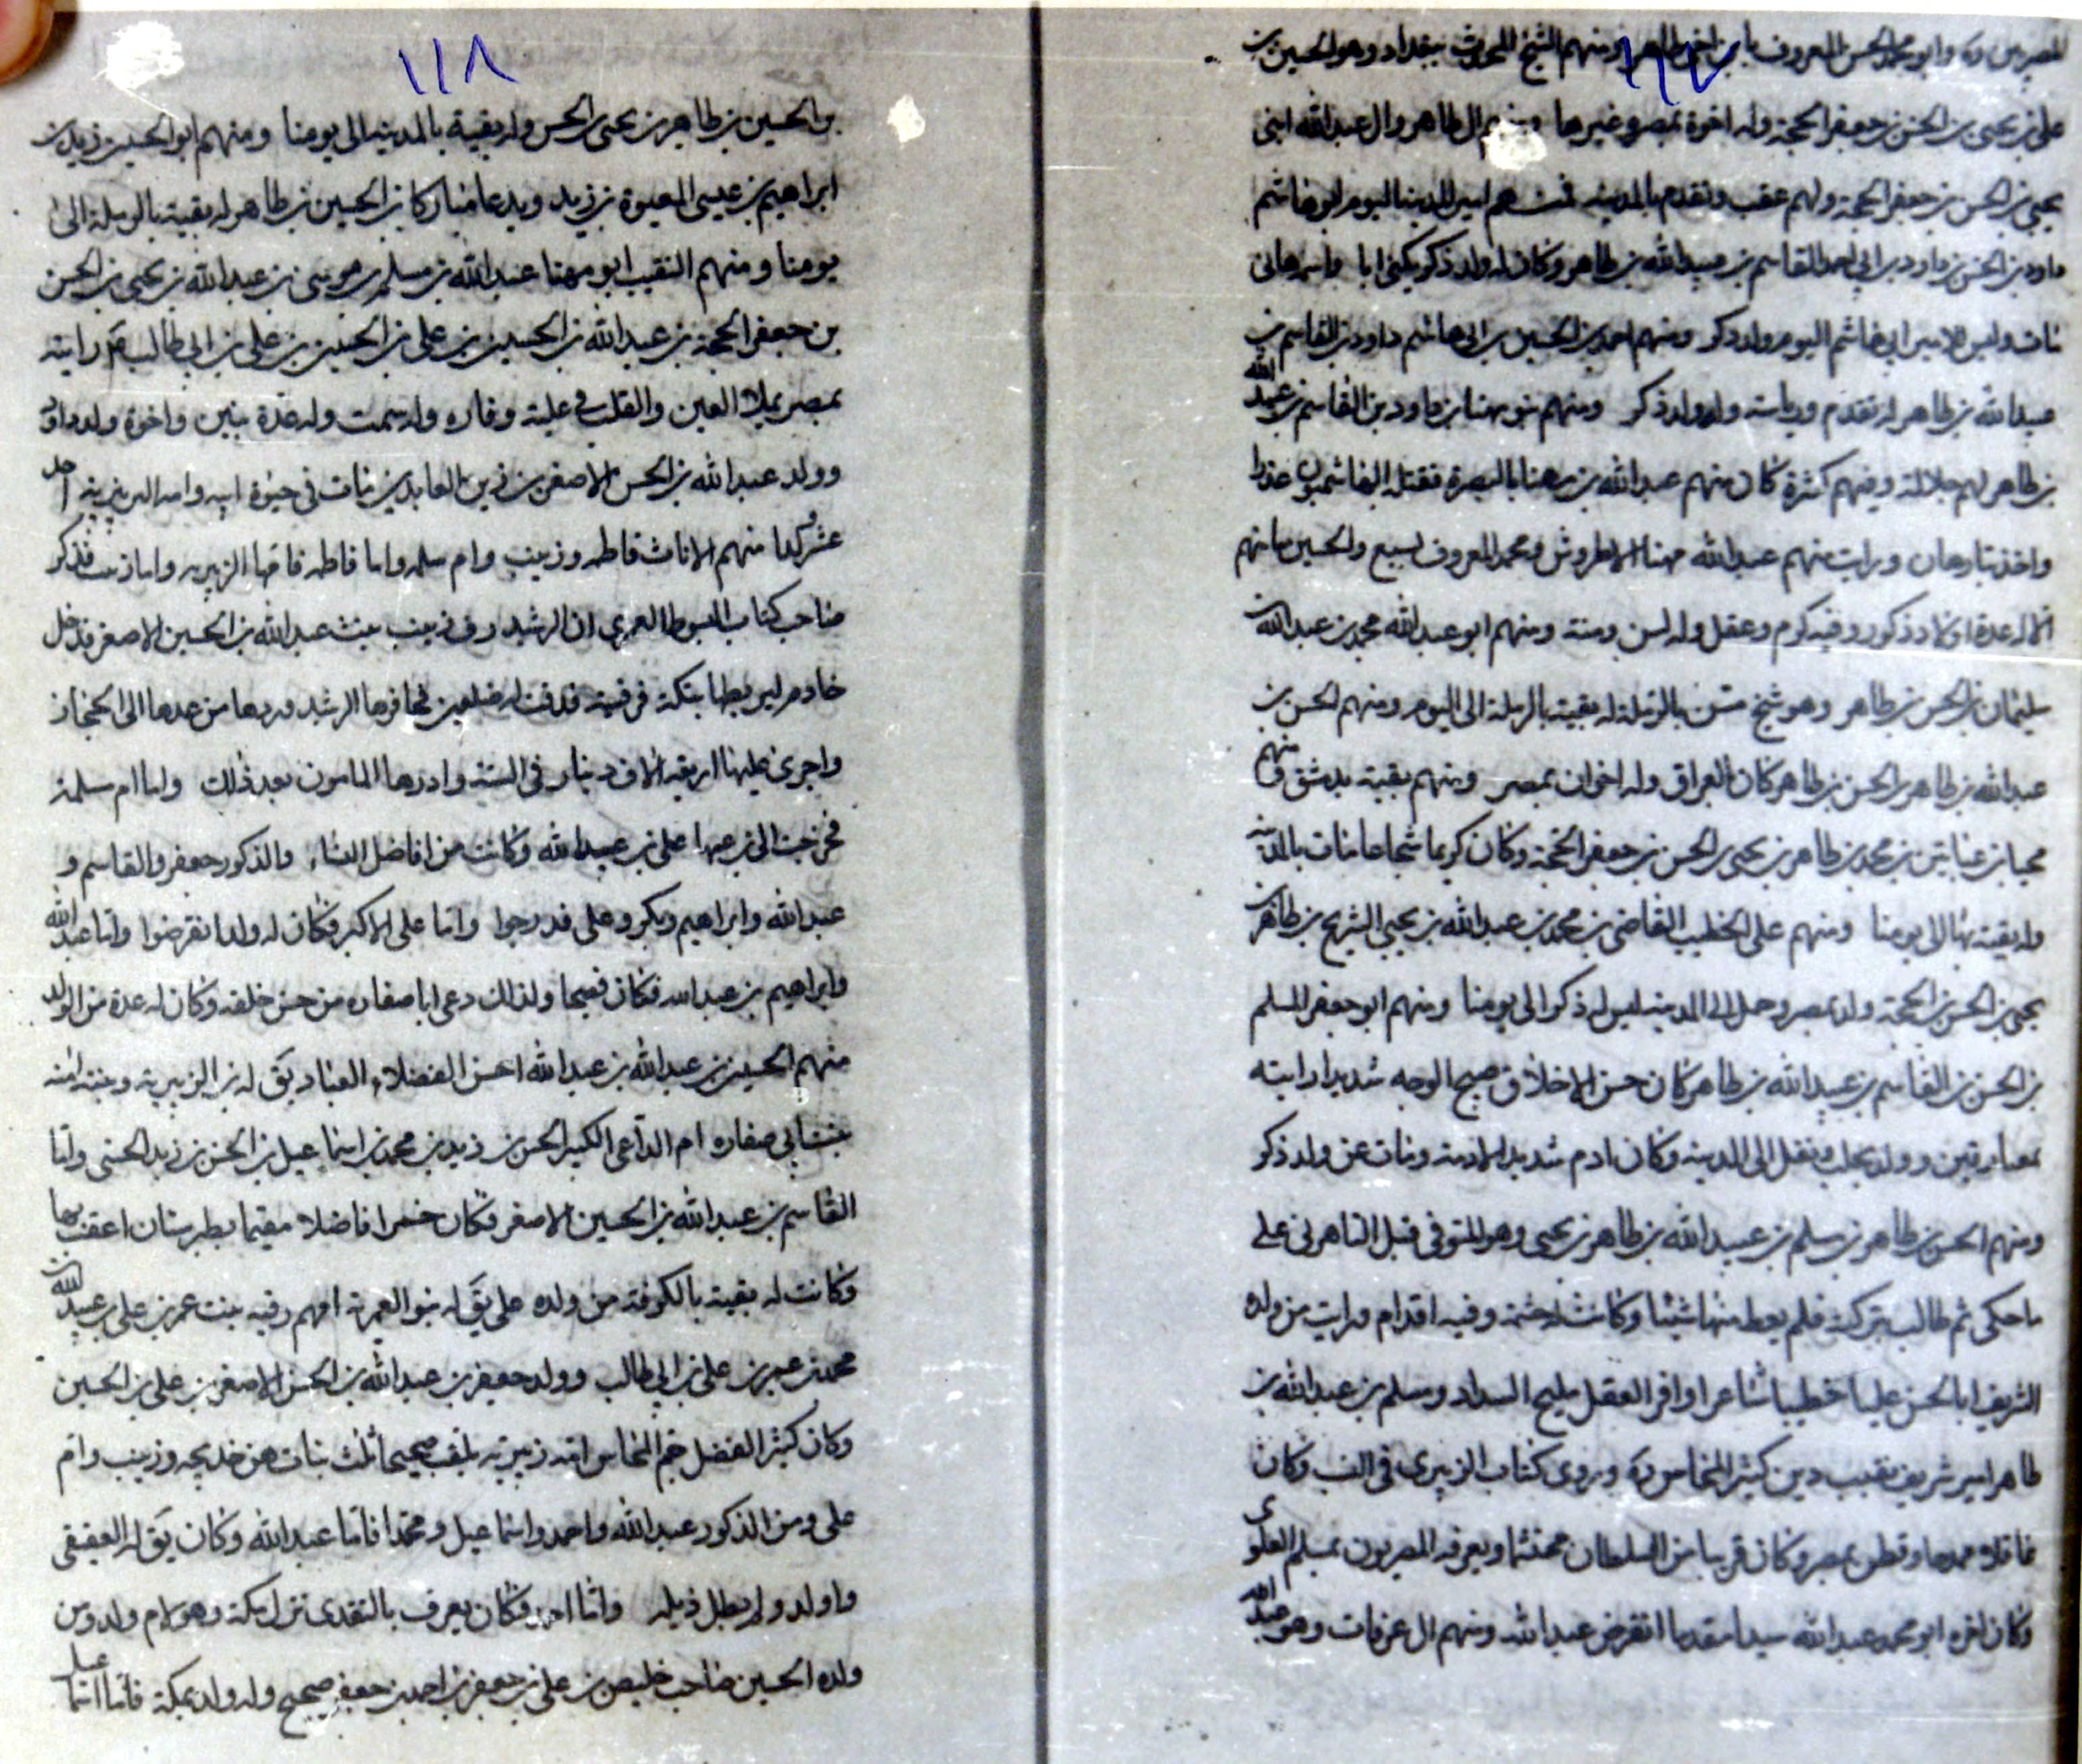 ١١٧
وابو محمد الحسن المعروف بابن اخي طاهر ومنهم الشيخ المحدث ببغداد وهو الحسين بن
علي بن يحيى بن الحسن بن جعفر الحجة وله اخوة بمصر وغيرها ومنهم ال طاهر وال عبدالله ابنى
يحيى بن الحسن بن جعفر الحجة ولهم عقب وتقدم بالمدينة فمنهم امير المدينة اليوم ابو هاشم
داود بن الحسن بن داود بن ابي احمد القاسم بن عبيدالله بن طاهر وكان له ولد ذكر يكنى ابا
مات وليس للامير ابي هاشم اليوم ولد ذكر ومنهم احمد بن الحسين بن ابي هاشم داود بن القاسم بن
عبيدالله بن طاهر له تقدم ورياسة وله ولد ذكر ومنهم بنو مهنا بن داود بن القاسم بن عبيدالله
بن طاهر لهم جلالة وفيهم كثرة كان منهم عبدالله بن مهنا بالبصرة فقتله الهاشميون غدرا
واخذ بثاره هانى ورايت منهم عبدالله مهنا الاطروش ومحمد المعروف بسبيع والحسين ما منهم
الا له عدة اولاد ذكور وفيه كرم وعقل وله لسن ومنة ومنهم ابو عبدالله محمد بن عبدالله بن
سليمان بن الحسن بن طاهر وهو شيخ مسن بالرملة له بقية بالرملة الى اليوم ومنهم الحسن بن
عبدالله بن طاهر بن الحسن بن طاهر كان بالعراق وله اخوان بمصر ومنهم بقية بدمشق ومنهم
محيا بن عباس بن محمد بن طاهر بن يحيى بن الحسن بن جعفر الحجة وكان كريما شجاعا مات بالمدينة
وله بقية بها الى يومنا ومنهم على الخطيب القاضى بن محمد بن عبدالله بن يحيى الشريح بن طاهر بن
يحيى بن الحسن بن الحجة ولد بمصر وحمل الى المدينة ليس له ذكر الى يومنا ومنهم ابو جعفر المسلم
بن الحسن بن القاسم بن عبيدالله بن طاهر كان حسن الاخلاق صبيح الوجه شديدا رايته
بميافارقين وولد بحلب ونقل الى المدينة وكان ادم شديد الادمة ومات عن ولد ذكر
ومنهم الحسن بن طاهر بن مسلم بن عبيدالله بن طاهر بن يحيى وهو المتوفى قبل التاهرتى على
ما حكى ثم طالب بتركته فلم يعط منها شيئا وكانت له حشمة وفيه اقدام ورايت من ولده
الشريف ابا الحسن عليا خطيبا شاعرا وافر العقل مليح السداد ومسلم بن عبدالله بن
طاهر امير شريف نقيب دين كثير المحاسن وروى كتاب الزبيرى فى النسب وكان
عاقلا ممدحا وقطن بمصر وكان قريبا من السلطان محتشما ويعرفه المصريون بمسلم العلوى
وكان اخوه ابو محمد عبدالله سيدا مقدما انقرض عبدالله ومنهم ال عرفات وهو عبدالله
١١٨
بن الحسين بن طاهر بن يحيى بن الحسن وله بقية بالمدينة الى يومنا ومنهم ابو الحسين زيد بن
ابراهيم بن عيسى بن زيد ويدعا مباركا بن الحسين بن طاهر له بقية بالرملة الى
يومنا ومنهم النقيب ابو مهنا عبدالله بن مسلم بن موسى بن عبدالله بن يحيى بن الحسن
بن جعفر الحجة بن عبيدالله بن الحسين بن على بن الحسين بن على بن ابي طالب ع رايته
بمصر يملا العين والقلب عليه وقار وله سمت وله عدة بنين واخوة ولد داود
وولد عبدالله بن الحسين الاصغر بن زين العابدين مات فى حيوة ابيه وامه الزبيرية احد
عشر ولدا منهم الاناث فاطمه وزينب وام سلمه واما فاطمه فامها الزبيريه واما زينب فذكر
صاحب كتاب المبسوط العمري ان الرشيد زينب بنت عبدالله بن الحسين الاصغر فدخل
خادم ليربطها بتكة فرفسته فدقت له ضلعين فخافها الرشيد وردها من غدها الى الحجاز
واجرى عليها اربعة الاف دينار فى السنة وادرها المامون بعد ذلك واما ام سلمة
فخرجت الى ابن عمها على بن عبيدالله وكانت من افاضل النساء والذكور جعفر والقاسم و
عبدالله وابراهيم وبكر وعلى قد درجوا واما على الاكبر فكان له ولد انقرضوا واما عبدالله
وابراهيم بن عبدالله فكان فصيحا ولذلك دعى ابا صفاره من حسن خلقه وكان له عدة من الولد
منهم الحسين بن عبدالله بن عبدالله احسن الفضلاء العباد يق له بن الزبيرية وبنته امنه
بنت ابي صفاره ام الداعى الكبير الحسن بن زيد بن محمد بن اسماعيل بن الحسن بن زيد الحسنى واما
القاسم بن عبدالله بن الحسين الاصغر فكان خيرا فاضلا مقيما بطبرستان اعقب بها
وكانت له بقية بالكوفة من ولده على يق له بنو العمرية امهم رقيه بنت عمر بن على بن عبيدالله بن
محمد بن عمر بن على بن ابي طالب وولد جعفر بن عبدالله بن الحسين الاصغر بن على بن الحسين
وكان كثير الفضل جم المحاسن امه زبيرية يلقب صحيحا ثلث بنات هن خديجه وزينب وام
على ومن الذكور عبدالله واحمد واسماعيل ومحمدا فاما عبدالله وكان يق له العقيقى
واولد ولم يطل ذيله واما احمد فكان يعرف بالمنقدى نزل مكة وهو لام ولد ومن
ولده الحسين صاحب خليص بن على بن جعفر بن احمد بن جعفر صحيح وله ولد بمكة فاما اسماعيل